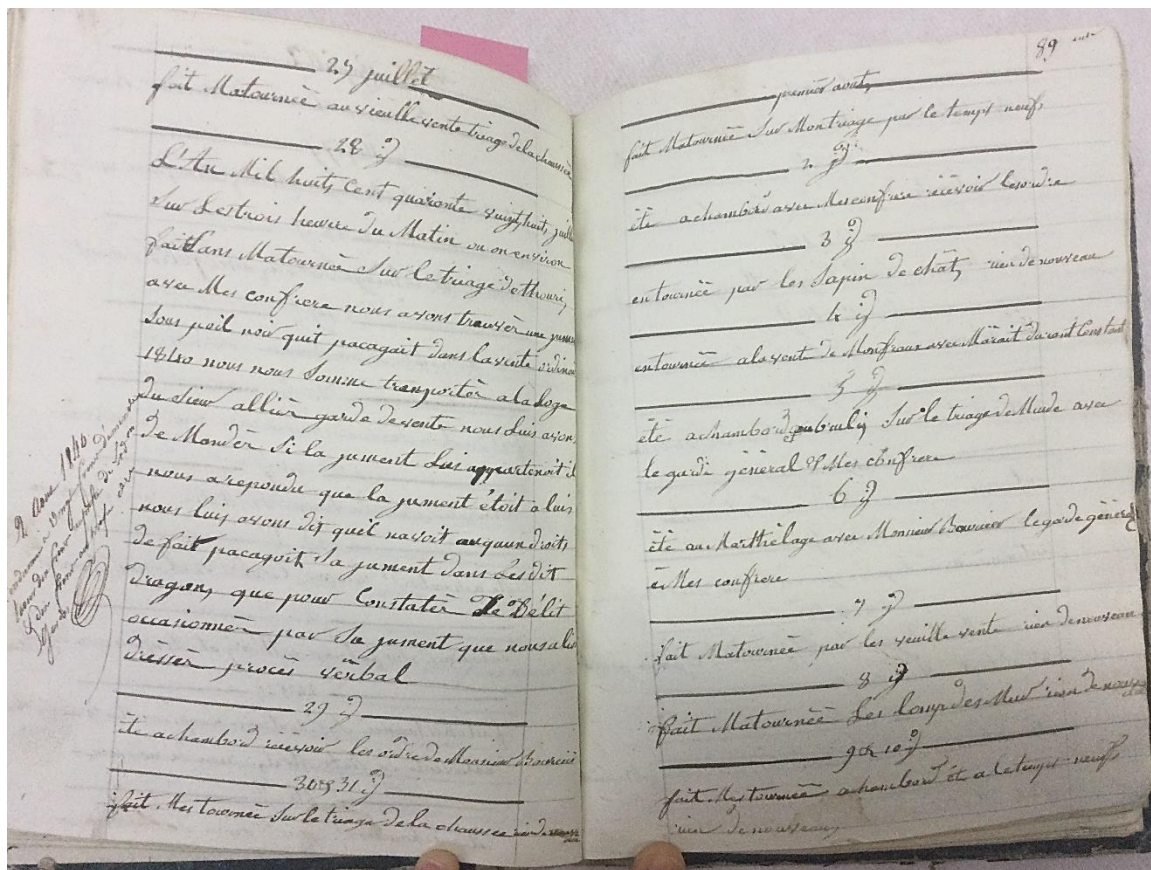 27 juillet
fait Matournèe au vieille vente triage de la chaussèe
28 d
L'An Mil huits Cent quaronte vingt huit, juille
Sur Les trois heure du Matin ou on environ
fait Sans Matournèe Sur le triage de thouri,
avec Mes confrere nous avons trouvèr une jument
Sous poil noir quit pacagait dans la vente ordinaire
1840 nous nous Somme transportèr a la loge
du Sieur allier garde de vente nous Luis avons
de Mandèr Si la jument Luis appartenoit il
nous a repondu que la jument ètoit a luis
nous luis avons dit quil navoit auquun droits
de fait pacagoit Sa jument dans Les dit
dragon, que pour Constatèr Le Dèlit
occasionnèr par Sa jument que nous a lis
dressèr procès vèrbal
29 d
ète a chambord recevoir les ordre de Monsieur Bournier
30 & 31 d
fait Mes tournèe Sur le triage de la chaussee rien de nouveau
2 Aout 1840
89
premier aout,
fait Matournèe Sur Montriage par le temps neufs
2 d
ète a chambord avec Mes confrere recevoir Les ordre
3 d
en tournèe par les Sapin de chat, rien de nouveau
4 d
en tournèe a la vente de Monfraux avec Constant
5 d
ète a chambord Sur le triage de Muide avec
le garde gènèral & Mes confrere
6 d
ète au Marthèlage avec Monsieur Bournier le gade gènèral
è Mes confrere
7 d
fait Matournèe par les veuille vente rien de nouveau
8 d
fait Matournèe Les long des Mur rien de nouveau
9 & 10 d
fait Mes tournèes a chambord ète a le temps neufs
rien de nouveau,